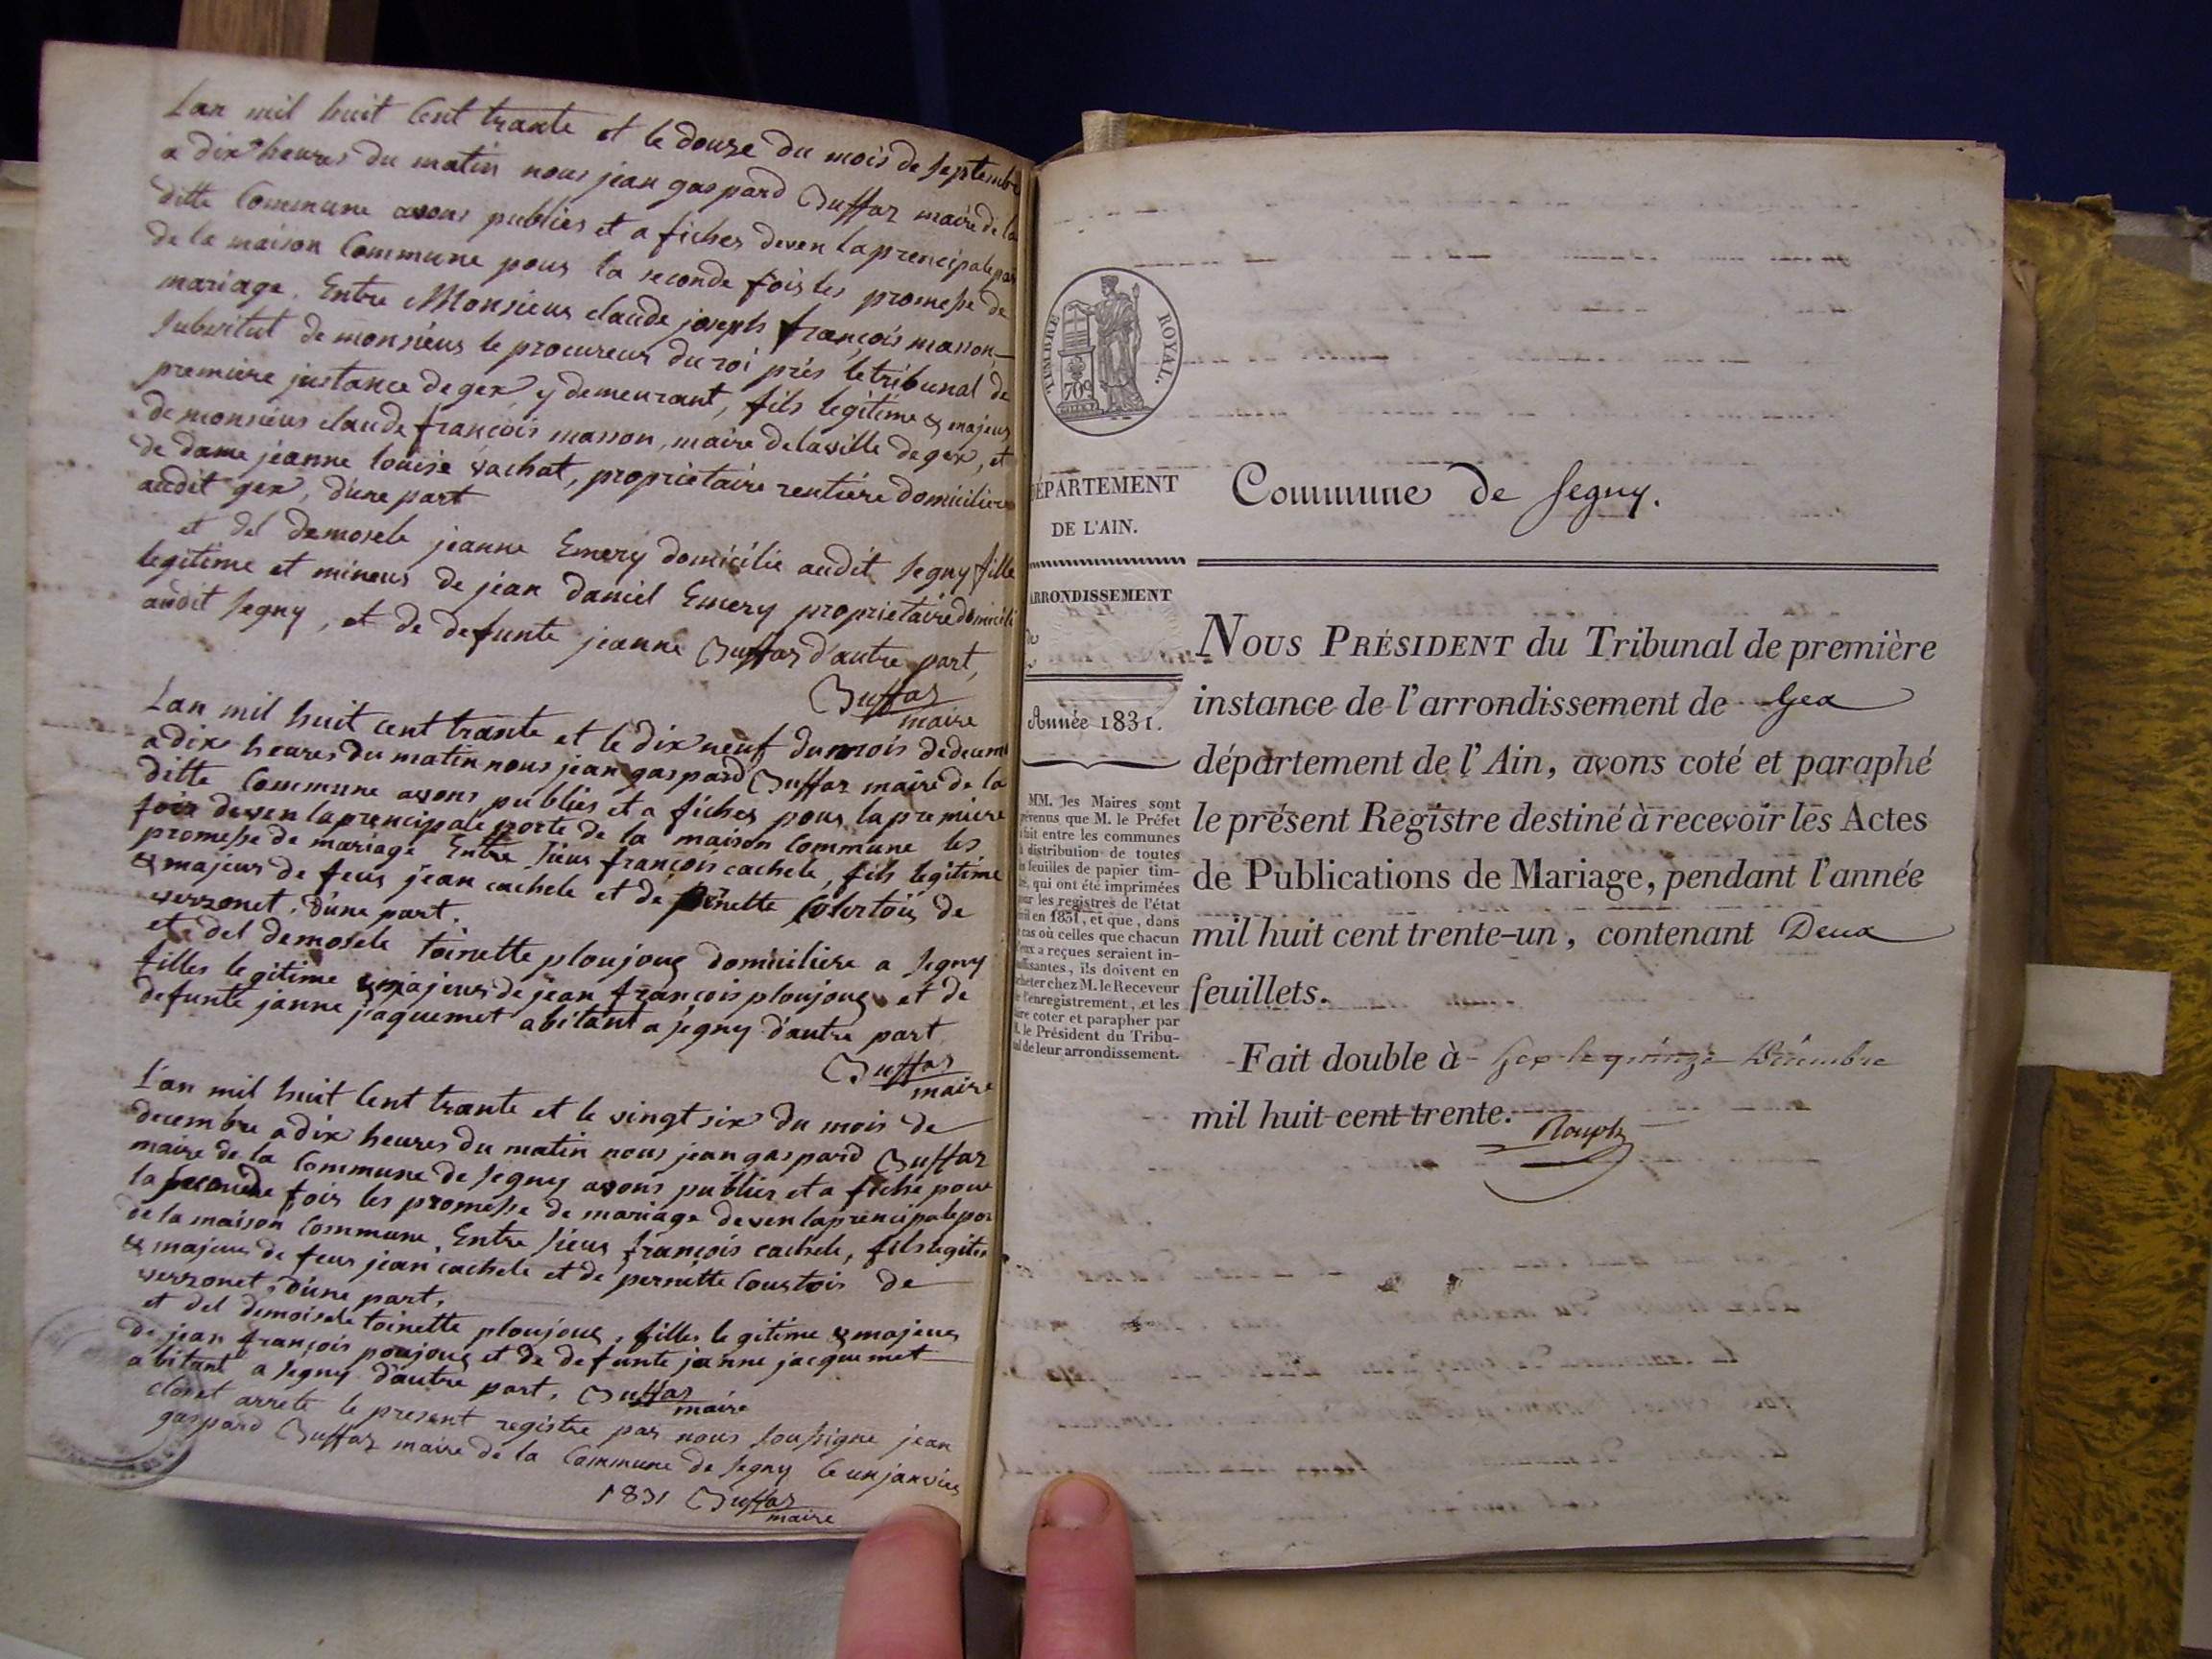 Lan mil huit Cent trante et le douze du mois de septembre
a dix heures du matin nous jean gaspard Buffaz maire de la
ditte Commune avons publies et a fiches deven la prencipale por
de la maison Commune pour la seconde fois les promesse de
mariage. Entre Monsieur claude joseph françois masson
substitut de monsieur le procureur du roi prés le tribunal de
premiere justance de gex y demeurant, fils legitime & majeur
de monsieur claude françois masson, maire de la ville de gex, et
de dame jeanne louise vachat, proprietaire rentiére domiciliée
audit gex, d'une part
et del demosele jeanne Emery domicilie audit segny fille
legitime et mineur de jean daniel Emery proprietaire domicili
audit segny, et de defunte jeanne Buffaz d'autre part,
Buffaz
maire
Lan mil huit cent trante et le dix neuf du mois de decem
a dix heures du matin nous jean gaspard Buffaz maire de la
ditte Commune avons publies et a fiches pour la premiere
fois deven la prencipale porte de la maison Commune les
promesse de mariage Entre sieur françois cachele, fils legitime
& majeur de feus jean cachele et de pernette Courtois de
versonet, d'une part.
et del demosele toinette ploujoux domiciliere a segny
filles legitime & majeur de jean françois ploujoux et de
defunte janne jaquemet abitant a segny d'autre part
Buffaz
maire
L'an mil huit Cent trante et le vingt six du mois de
decembre a dix heures du matin nous jean gaspard Buffaz
maire de la Commune de segny avons publier et a fiche pour
la seconde fois les promesse de mariage deven la prencipale por
de la maison Commune. Entre sieur françois cachele, fils legiti
& majeur de feus jean cachele et de pernette Coustois de
versonet, d'une part,
et del demoisele toinette ploujoux, filles legitime & majeur
de jean françois poujoux et de defunte janne jacquemet
abitant a segny d'autre part. Buffaz
maire
closet arrete le present registre par nous soussigne jean
gaspard Buffaz maire de la Commune de segny le un janvier
1831 Buffaz
maire
TIMBRE ROYAL.
70c
DÉPARTEMENT
DE L'AIN.
ARRONDISSEMENT
de
Année 1831.
MM. les Maires sont
prévenus que M. le Préfet
a fait entre les communes
la distribution de toutes
les feuilles de papier tim-
bré, qui ont été imprimées
pour les registres de l'état
civil en 1831, et que, dans
le cas où celles que chacun
d'eux a reçues seraient in-
suffisantes, ils doivent en
acheter chez M. le Receveur
de l'enregistrement, et les
faire coter et parapher par
M. le Président du Tribu-
nal de leur arrondissement.
Commune de Segny.
NOUS PRÉSIDENT du Tribunal de première
instance de l'arrondissement de Gex
département de l'Ain, avons coté et paraphé
le présent Registre destiné à recevoir les Actes
de Publications de Mariage, pendant l'année
mil huit cent trente-un, contenant Deux
feuillets.
Fait double à Gex le quinze Décembre
mil huit cent trente.